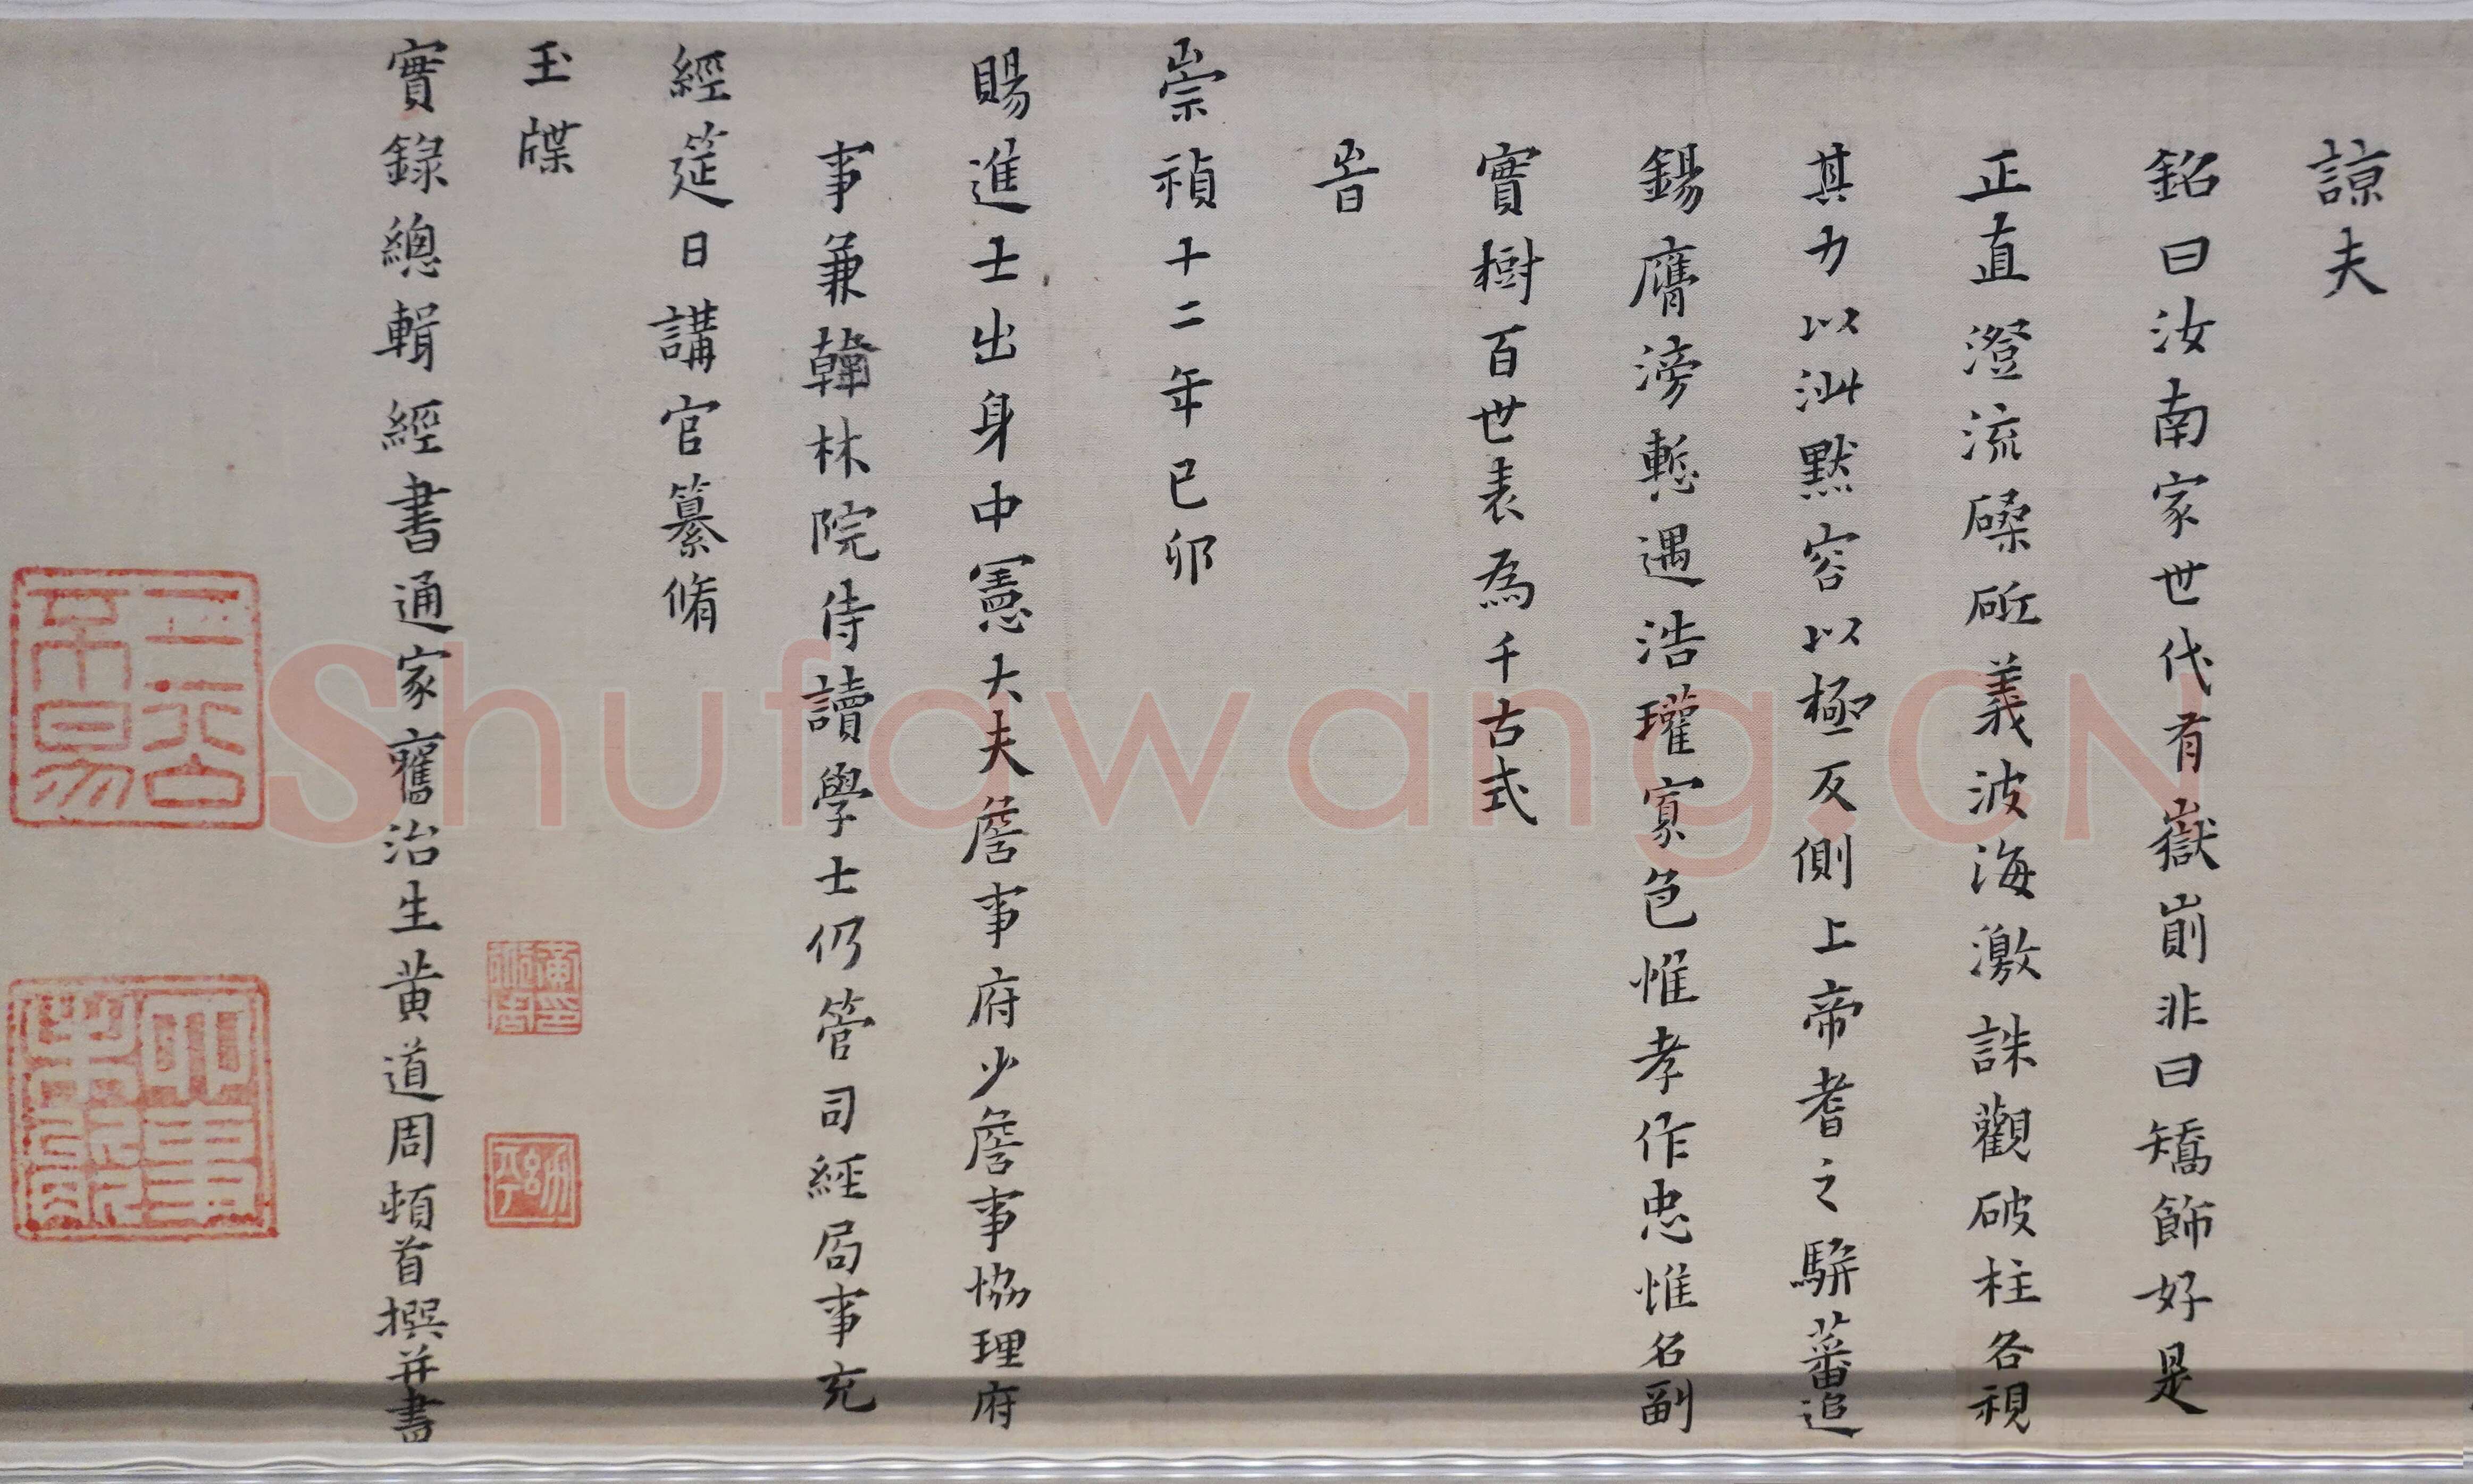 諒夫
銘曰汝南家世代有嶽崱非曰矯飾好是
正直澄流磉斫義波海激誅觀破柱各視
其力以汕黙容以極反側上帝耆之騈蕃追
錫膺滂慙遇浩瓘寡色惟孝作忠惟名副
實樹百世表為千古式
旹
崇禎十二年己卯
賜進士出身中憲大夫詹事府少詹事協理府
事兼翰林院侍讀學士仍管司經局事充
經筵日講官纂脩
玉牒
實錄總輯經書通家舊治生黄道周頓首撰并書
Shufawang.CN